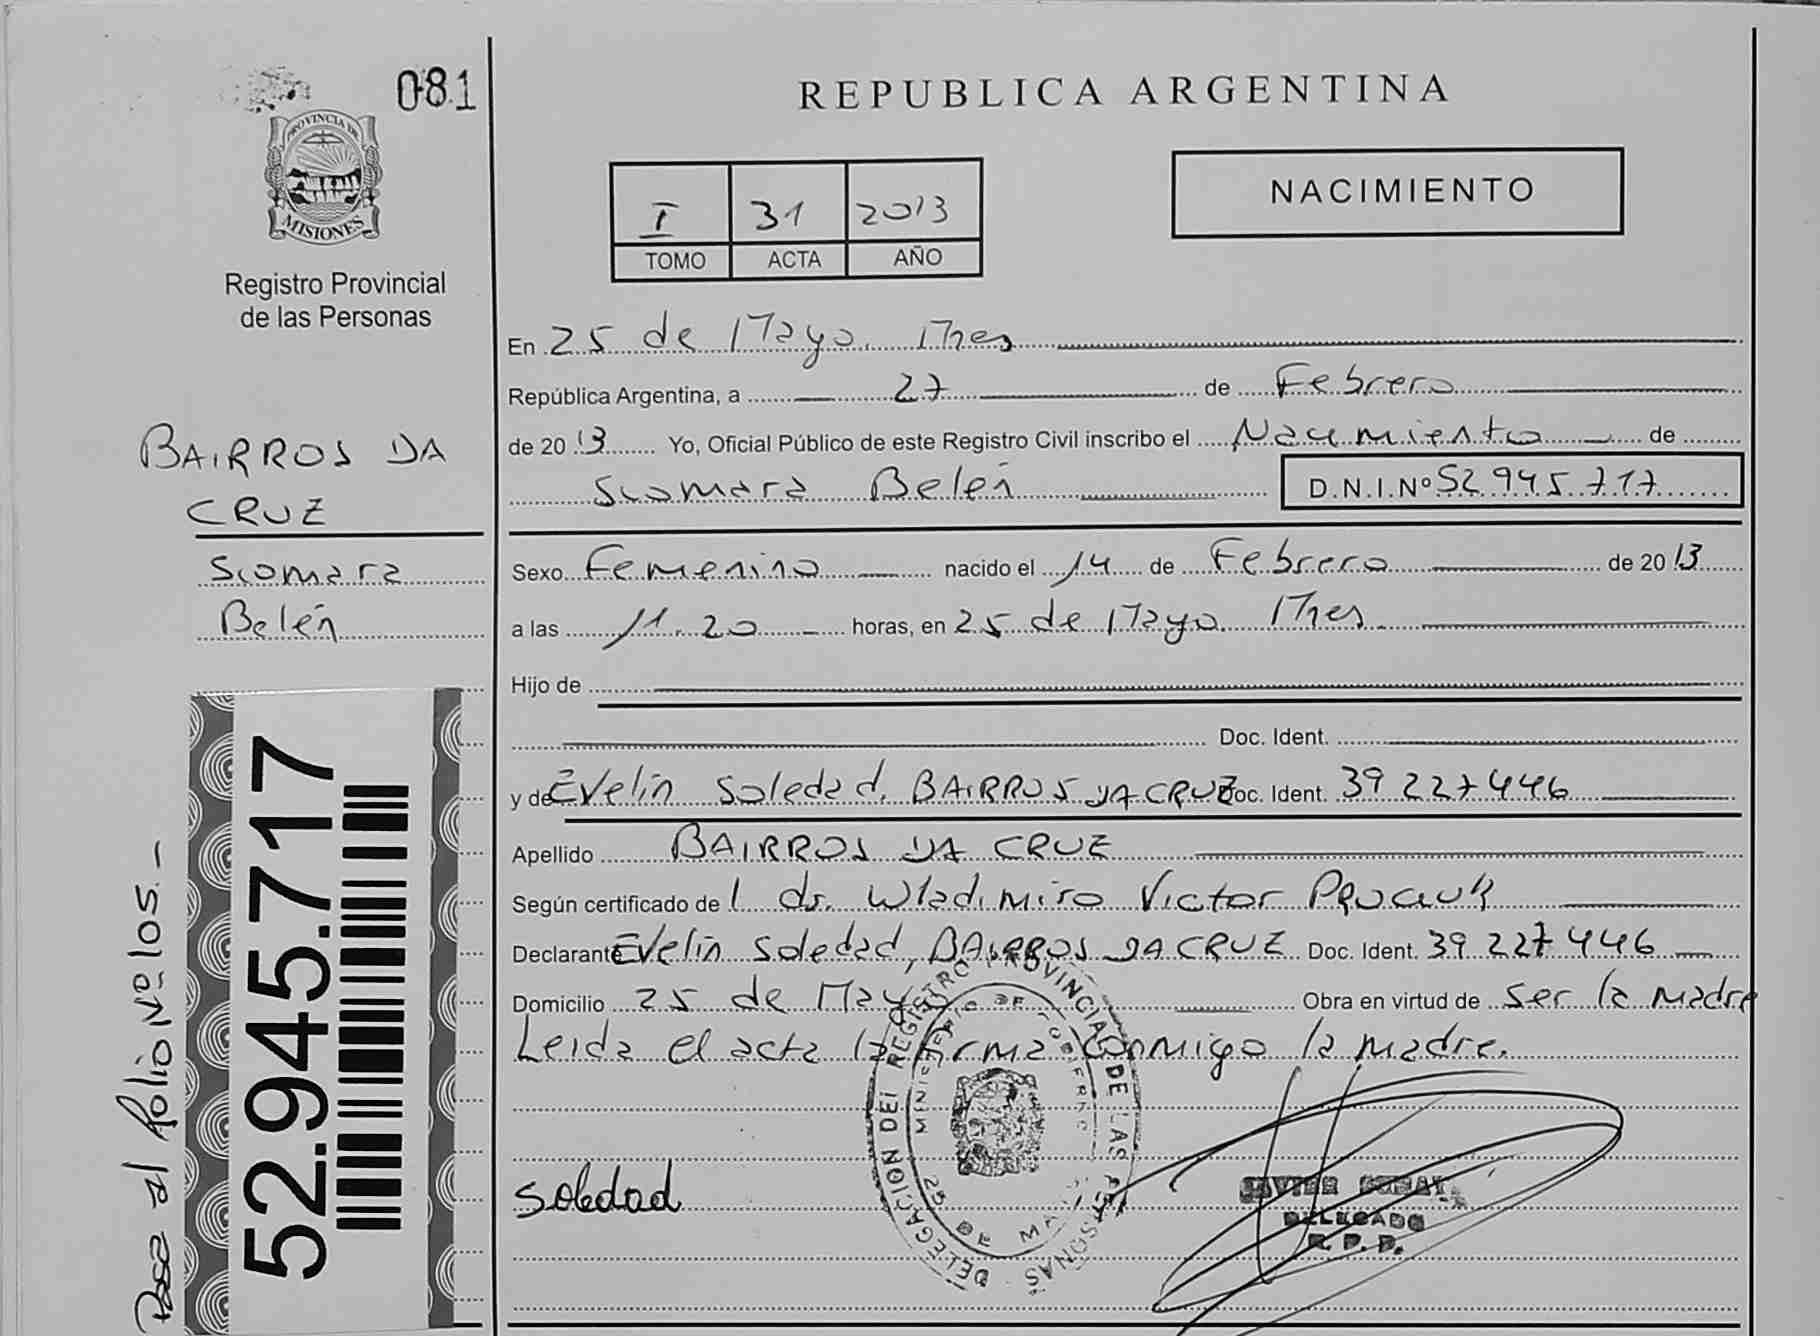 081
PROVINCIA DE
MISIONES
Registro Provincial
de las Personas
BAIRROS DA
CRUZ
Siomara
Belén
52.945.717
Pasa al folio Nº 105.-
REPUBLICA ARGENTINA
I 31 2013
TOMO ACTA AÑO
NACIMIENTO
En 25 de Mayo. Mnes
República Argentina, a 27 de Febrero
de 20 13 Yo, Oficial Público de este Registro Civil inscribo el Nacimiento de
Siomara Belén D.N.I.Nº 52 945 717
Sexo Femenino nacido el 14 de Febrero de 20 13
a las 11.20 horas, en 25 de Mayo. Mnes
Hijo de
Doc. Ident.
y de Evelin Soledad, BAIRROS DA CRUZ Doc. Ident. 39 227 446
Apellido BAIRROS DA CRUZ
Según certificado de l dr. Wladimiro Victor
Declarante Evelin Soledad, BAIRROS DA CRUZ Doc. Ident. 39 227 446
Domicilio 25 de Mayo Obra en virtud de Ser la madre
Leida el acta la firma conmigo la madre.
DELEGACION DEL REGISTRO PROVINCIAL DE LAS PERSONAS
MINISTERIO DE GOBIERNO
25 DE MAYO
Soledad
JAVIER
DELEGADO
R. P. P.